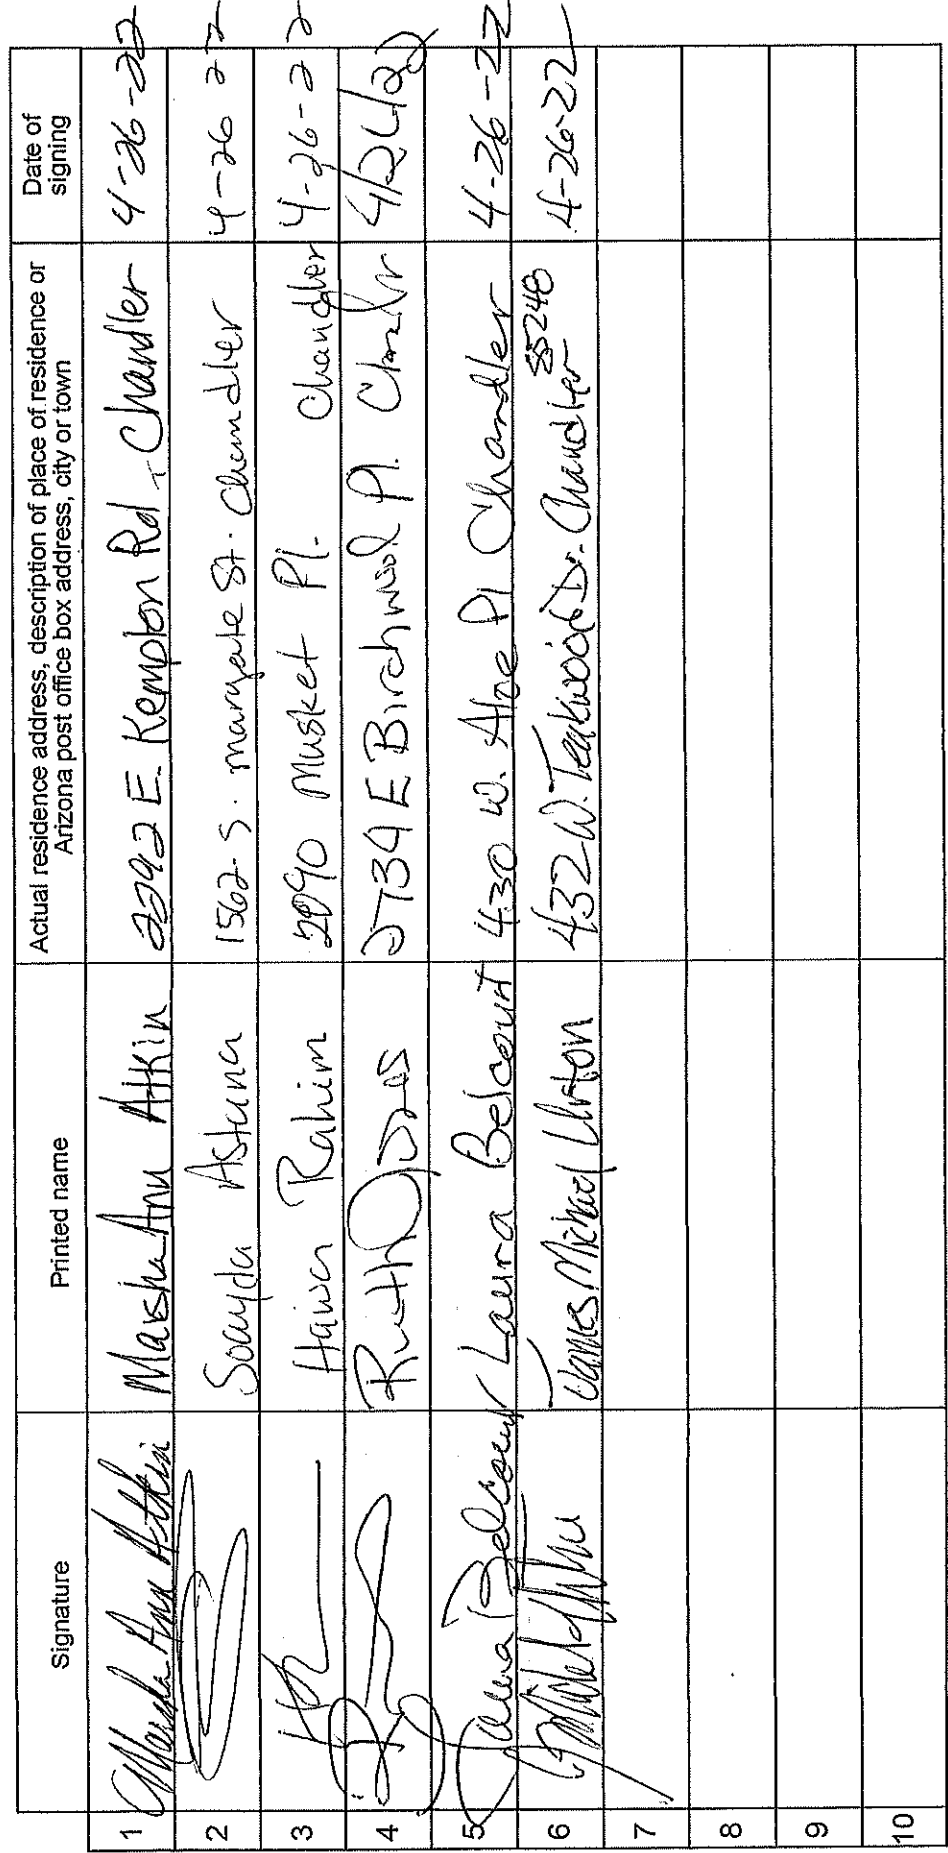 Signature Printed name Actual residence address, description of place of residence or Arizona post office box address, city or town Date of signing
1 Marsha Ann Atkin Marsha Ann Atkin 2292 E. Kempton Rd, Chandler 4-26-22
2 Soayda Astana 1562 S. margate St. Chandler 4-26 22
3 Hawa Rahim 2090 Musket Pl. Chandler 4-26-22
4 Ruth 2734 E Birchwood Pl. Chandlr
5 Laura Belcourt Laura Belcourt 430 W. Aloe Pl Chandler 4-26-22
6 James Michael 432 W. Teakwood Dr. Chandler 85248 4-26-22
7
8
9
10